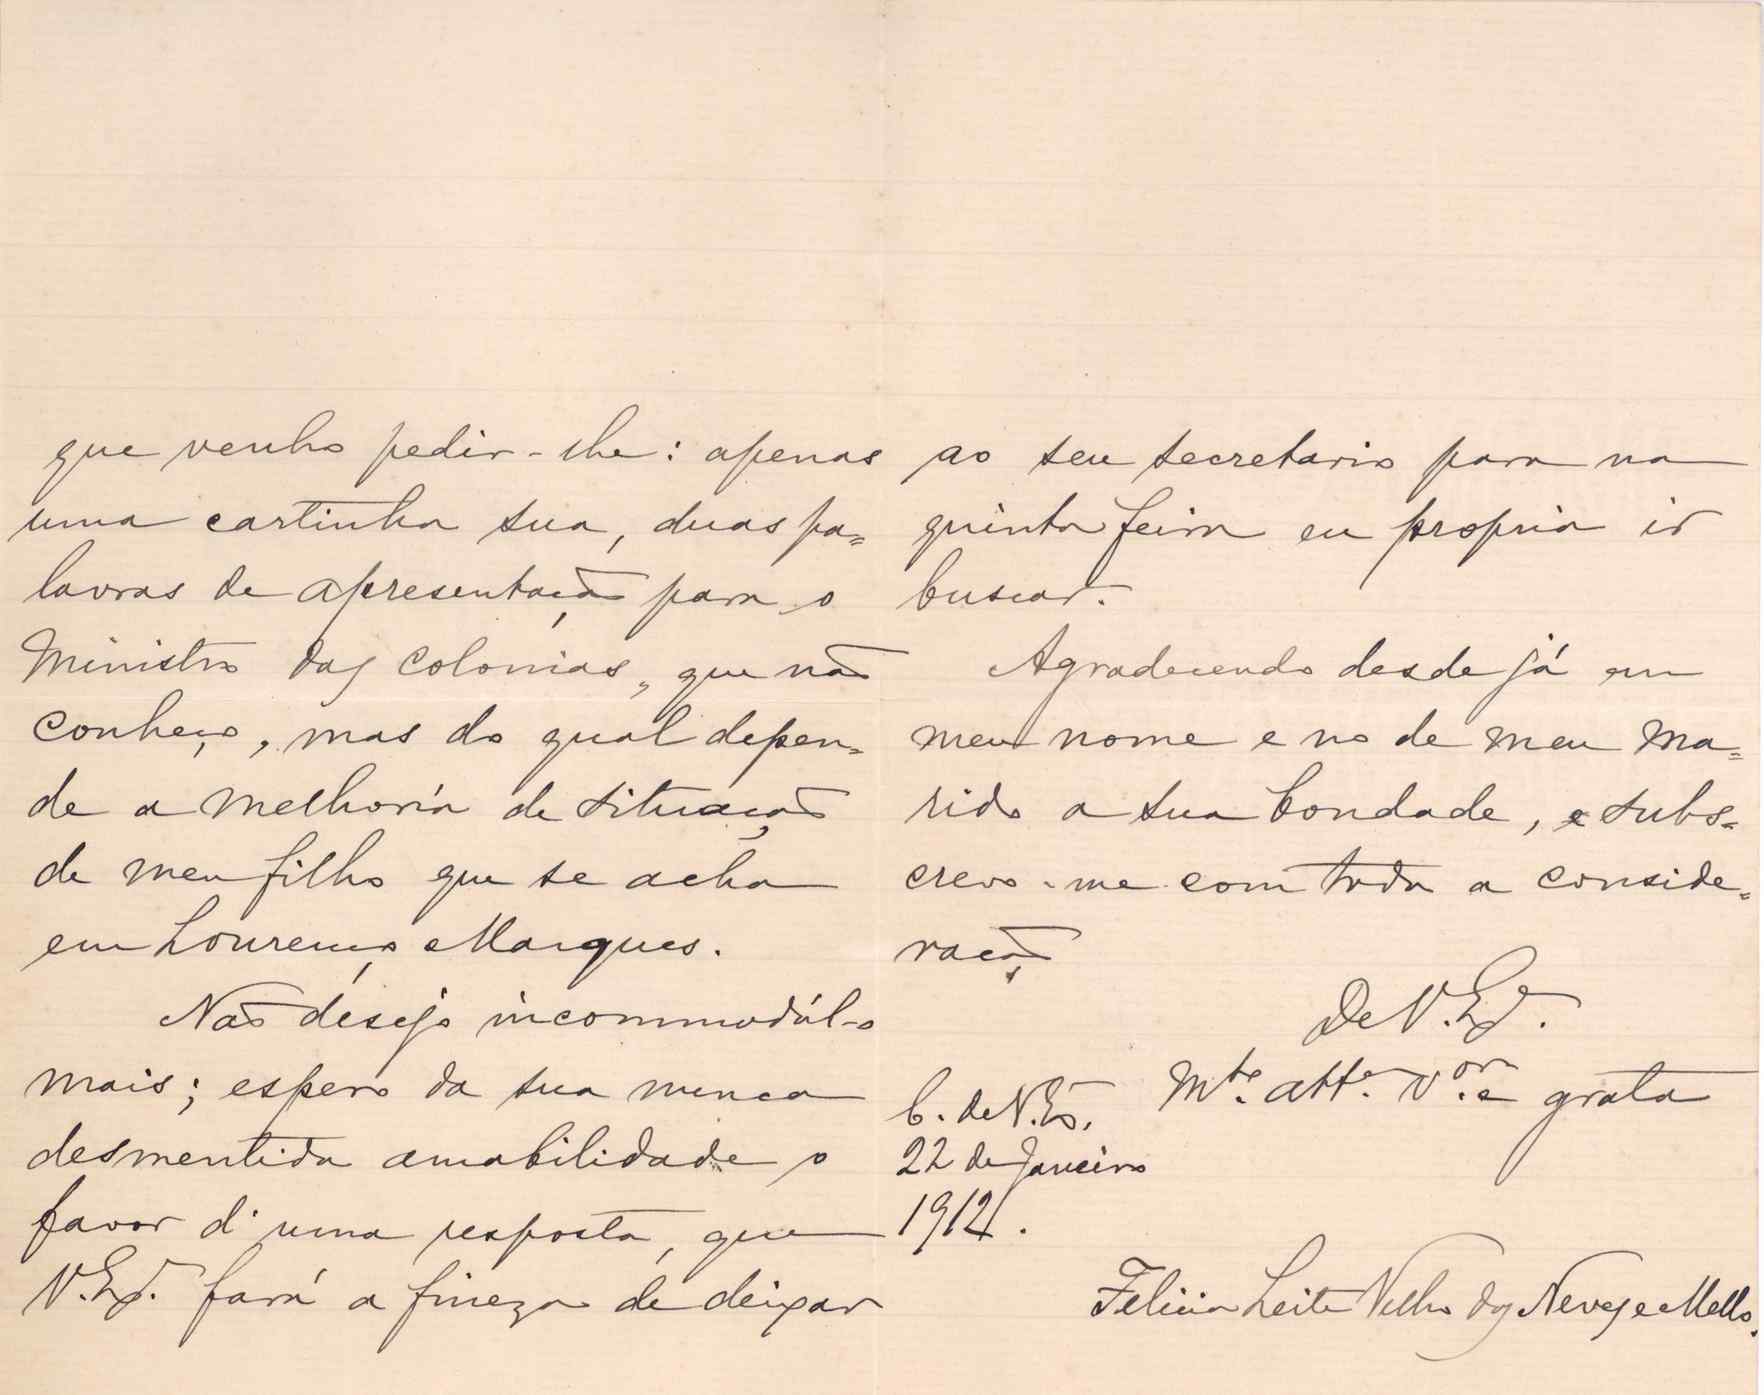 que venho pedir-lhe: apenas
uma cartinha sua, duas pa=
lavras de apresentação para o
Ministro das Colonias, que não
conheço, mas do qual depen=
de a melhoria de situação
de meu filho que se acha
em Lourenço Marques.
Não desejo incommodál-o
mais; espero da sua nunca
desmentida amabilidade o
favor d'uma resposta, que
V. Exª. fará a fineza de deixar
ao seu secretario para na
quinta feira eu propria ir
buscar.
Agradecendo desde já em
meu nome e no de meu ma=
rido a sua bondade, e subs=
crevo-me com toda a conside=
ração
De V. Exª.
Mto. attª. vorª. e grata
C. de V. Exª.
22 de Janeiro
1912.
Felicia Leite Velho das Neves e Mello.